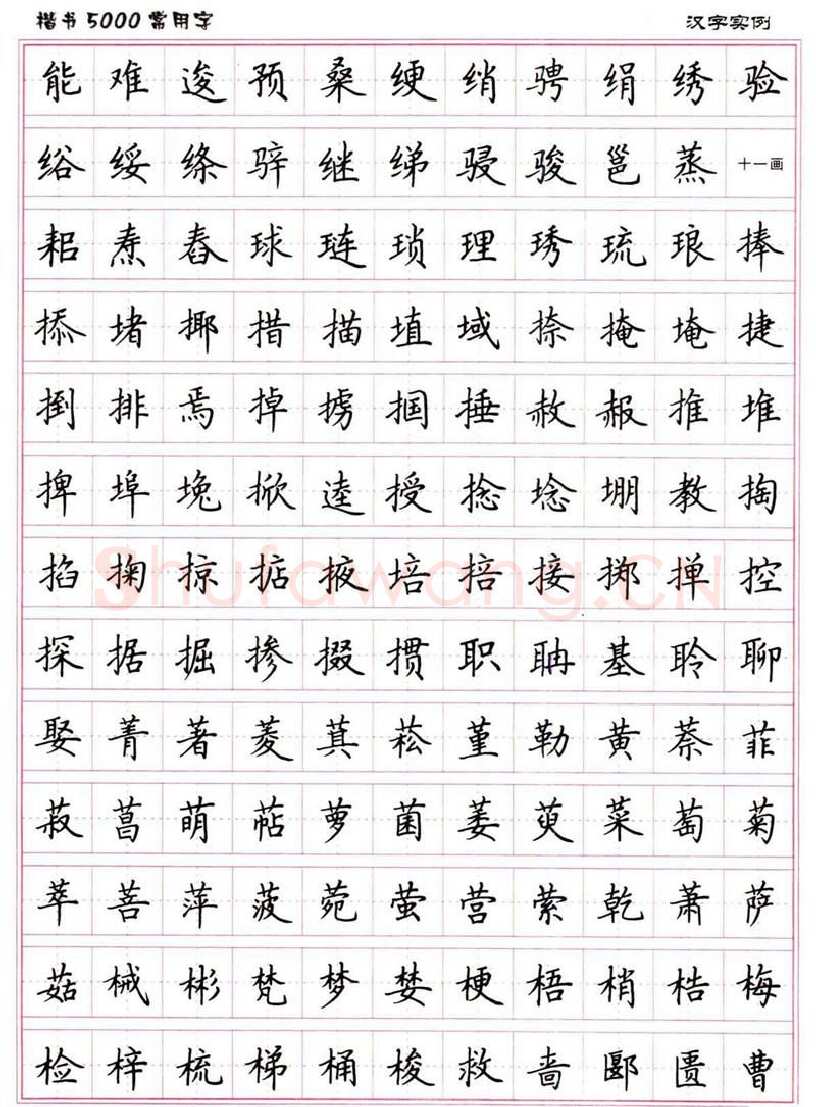 楷书5000常用字 汉字实例
能难逡预桑绠绡骋绢绣验
绤绥绦骍继绨骎骏邕蒸十一画
耜焘舂球琏琐理琇琉琅捧
掭堵揶措描埴域捺掩埯捷
捯排焉掉掳掴捶赦赧推堆
捭埠堍掀逵授捻埝堋教掏
掐掬掠掂掖培掊接掷掸控
探据掘掺掇掼职聃基聆聊
娶菁著菱萁菘堇勒黄萘菲
菽菖萌萜萝菌萎萸菜萄菊
萃菩萍菠菀萤营萦乾萧萨
菇械彬梵梦婪梗梧梢梏梅
检梓梳梯桶梭救啬郾匮曹
Shufawang.CN